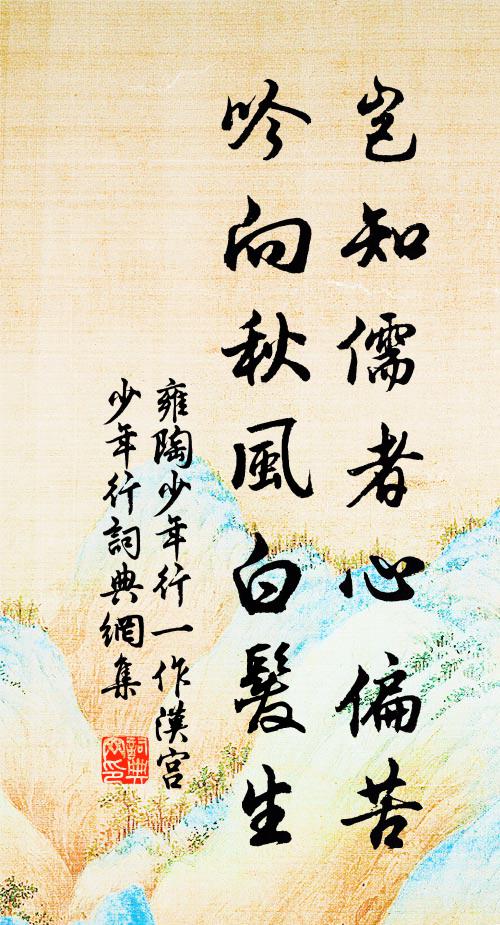 豈知儒者心偏苦
吟向秋風白髮生
雍陶少年行一作漢宮
少年行詞典網集